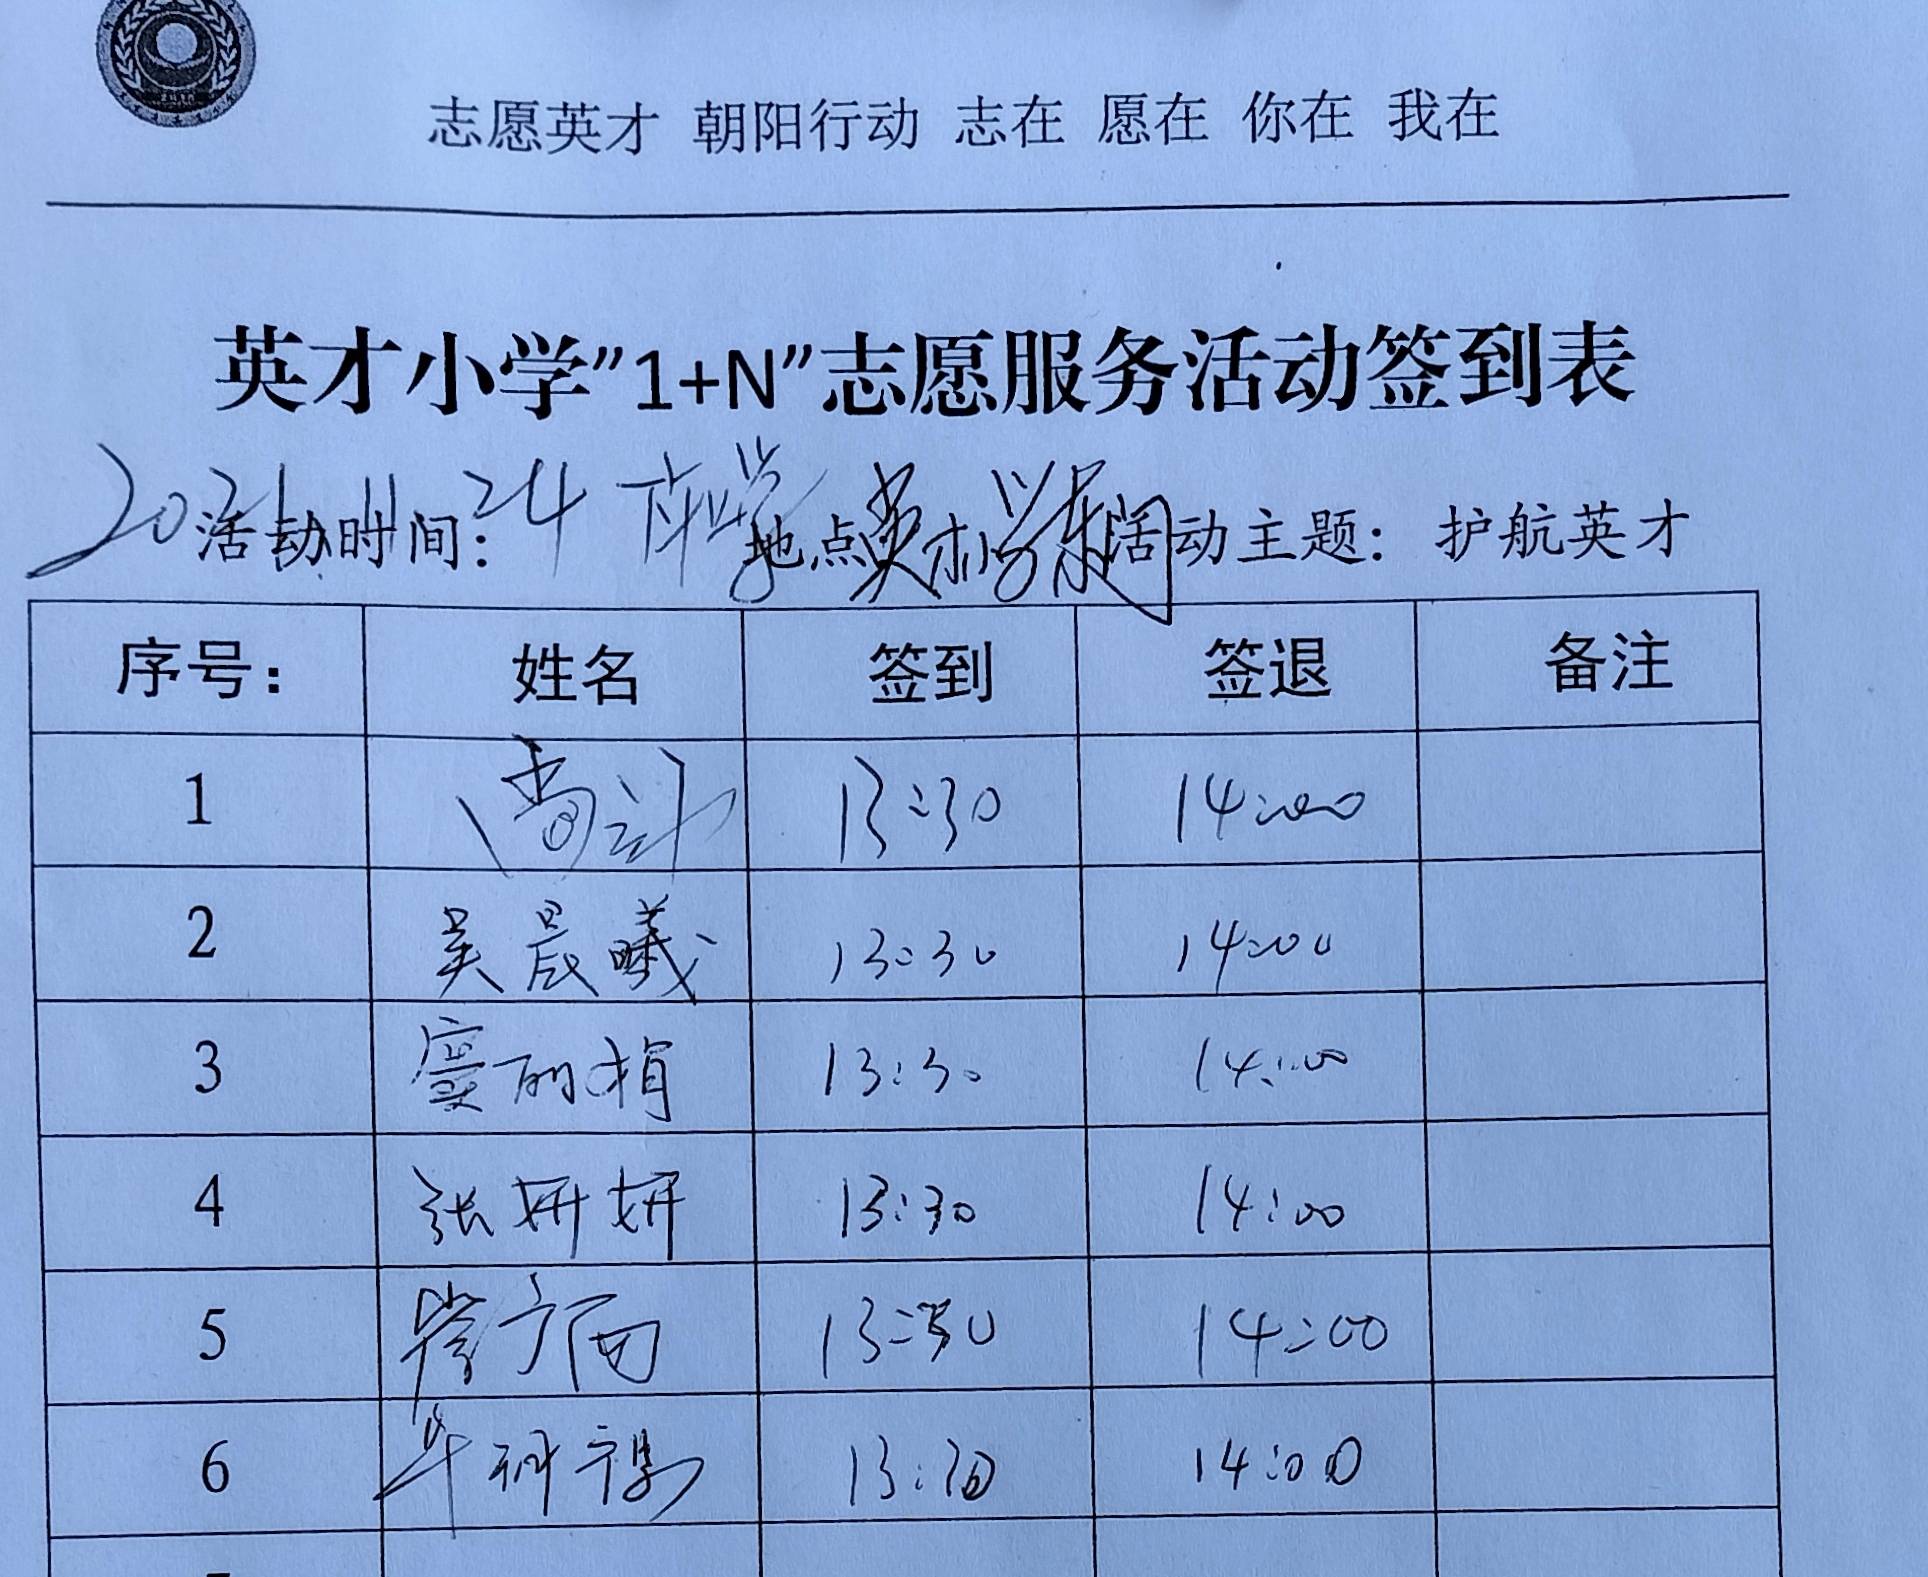 志愿英才 朝阳行动 志在 愿在 你在 我在
英才小学”1+N”志愿服务活动签到表
2021.11.24 活动时间： 地点 英才小学东门 活动主题：护航英才
序号： 姓名 签到 签退 备注
1 13:30 14:00
2 吴晨曦 13:30 14:00
3 13:30 14:00
4 张妍妍 13:30 14:00
5 13:30 14:00
6 13:30 14:00